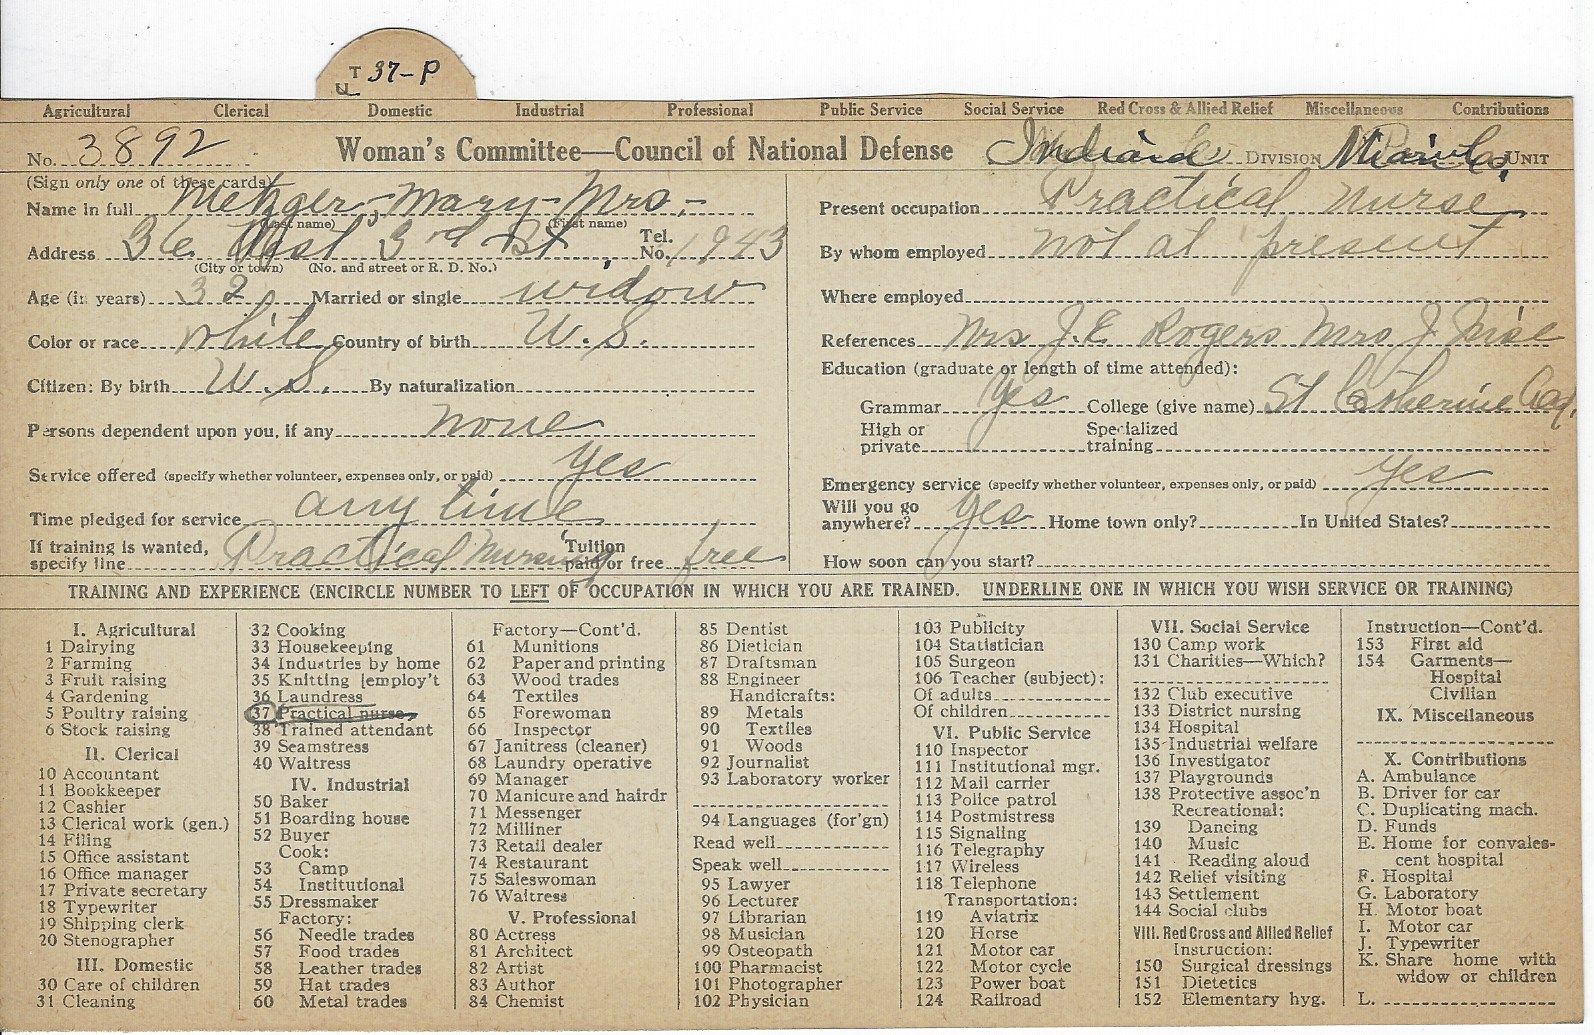 T 37-P
U
Agricultural Clerical Domestic Industrial Professional Public Service Social Service Red Cross & Allied Relief Miscellaneous Contributions
No. 3892 Woman's Committee—Council of National Defense Indiana DIVISION Miami Co. UNIT
(Sign only one of these cards)
Name in full Metzger, - Mary - Mrs. -
(Last name) (First name)
Address 36 West 3rd St Tel. No. 1943
(City or town) (No. and street or R. D. No.)
Age (in years) 32 Married or single widow
Color or race white Country of birth U. S.
Citizen: By birth U. S. By naturalization
Persons dependent upon you, if any none
Service offered (specify whether volunteer, expenses only, or paid) yes
Time pledged for service any time
If training is wanted, specify line Practical Nursing Tuition paid or free free
Present occupation Practical nurse
By whom employed not at present
Where employed
References Mrs J. E. Rogers Mrs J.
Education (graduate or length of time attended):
Grammar yes College (give name) St Catherine Cad.
High or private Specialized training
Emergency service (specify whether volunteer, expenses only, or paid) yes
Will you go anywhere? yes Home town only? In United States?
How soon can you start?
TRAINING AND EXPERIENCE (ENCIRCLE NUMBER TO LEFT OF OCCUPATION IN WHICH YOU ARE TRAINED. UNDERLINE ONE IN WHICH YOU WISH SERVICE OR TRAINING)
I. Agricultural
1 Dairying
2 Farming
3 Fruit raising
4 Gardening
5 Poultry raising
6 Stock raising
II. Clerical
10 Accountant
11 Bookkeeper
12 Cashier
13 Clerical work (gen.)
14 Filing
15 Office assistant
16 Office manager
17 Private secretary
18 Typewriter
19 Shipping clerk
20 Stenographer
III. Domestic
30 Care of children
31 Cleaning
32 Cooking
33 Housekeeping
34 Industries by home
35 Knitting [employ't
36 Laundress
37 Practical nurse
38 Trained attendant
39 Seamstress
40 Waitress
IV. Industrial
50 Baker
51 Boarding house
52 Buyer
Cook:
53 Camp
54 Institutional
55 Dressmaker
Factory:
56 Needle trades
57 Food trades
58 Leather trades
59 Hat trades
60 Metal trades
Factory—Cont'd.
61 Munitions
62 Paper and printing
63 Wood trades
64 Textiles
65 Forewoman
66 Inspector
67 Janitress (cleaner)
68 Laundry operative
69 Manager
70 Manicure and hairdr
71 Messenger
72 Milliner
73 Retail dealer
74 Restaurant
75 Saleswoman
76 Waitress
V. Professional
80 Actress
81 Architect
82 Artist
83 Author
84 Chemist
85 Dentist
86 Dietician
87 Draftsman
88 Engineer
Handicrafts:
89 Metals
90 Textiles
91 Woods
92 Journalist
93 Laboratory worker
94 Languages (for'gn)
Read well
Speak well
95 Lawyer
96 Lecturer
97 Librarian
98 Musician
99 Osteopath
100 Pharmacist
101 Photographer
102 Physician
103 Publicity
104 Statistician
105 Surgeon
106 Teacher (subject):
Of adults
Of children
VI. Public Service
110 Inspector
111 Institutional mgr.
112 Mail carrier
113 Police patrol
114 Postmistress
115 Signaling
116 Telegraphy
117 Wireless
118 Telephone
Transportation:
119 Aviatrix
120 Horse
121 Motor car
122 Motor cycle
123 Power boat
124 Railroad
VII. Social Service
130 Camp work
131 Charities—Which?
132 Club executive
133 District nursing
134 Hospital
135 Industrial welfare
136 Investigator
137 Playgrounds
138 Protective assoc'n
Recreational:
139 Dancing
140 Music
141 Reading aloud
142 Relief visiting
143 Settlement
144 Social clubs
VIII. Red Cross and Allied Relief
Instruction:
150 Surgical dressings
151 Dietetics
152 Elementary hyg.
Instruction—Cont'd.
153 First aid
154 Garments—
Hospital
Civilian
IX. Miscellaneous
X. Contributions
A. Ambulance
B. Driver for car
C. Duplicating mach.
D. Funds
E. Home for convales-
cent hospital
F. Hospital
G. Laboratory
H. Motor boat
I. Motor car
J. Typewriter
K. Share home with
widow or children
L.